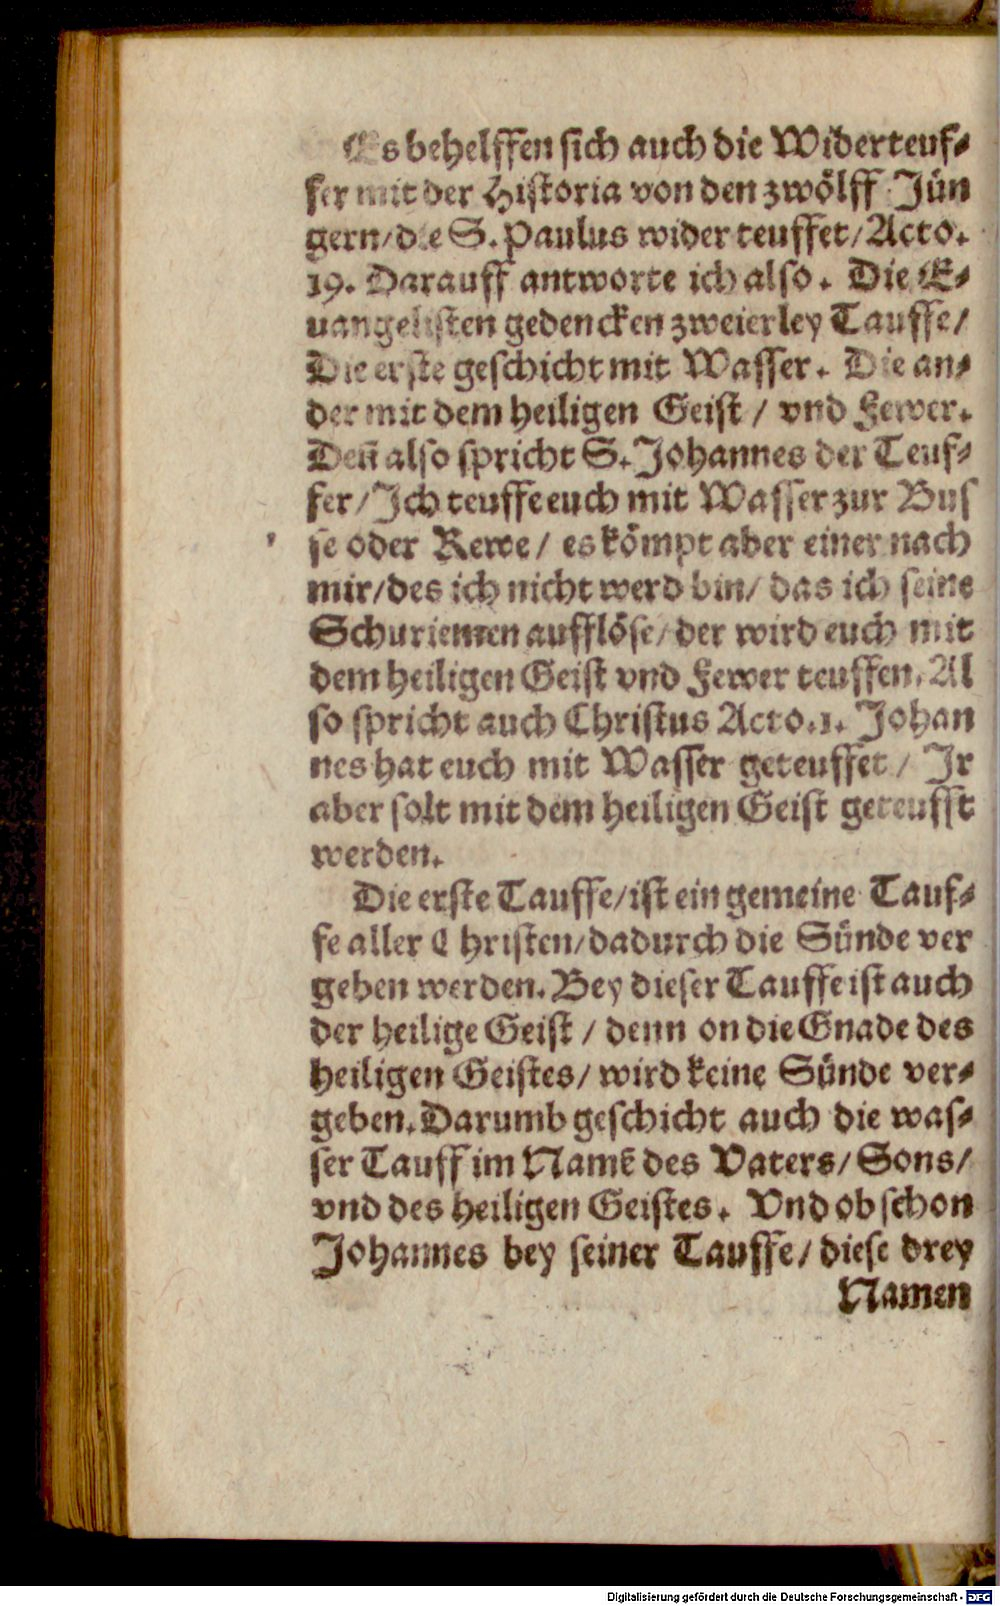 Es behelffen sich auch die Widerteuf-
fer mit der Historia von den zwölff Jün
gern/die S. Paulus wider teuffet/Acto.
19. Darauff antworte ich also. Die E-
uangelisten gedencken zweierley Tauffe/
Die erste geschicht mit Wasser. Die an-
der mit dem heiligen Geist / vnd Fewer.
Deñ also spricht S. Johannes der Teuf-
fer/Ich teuffe euch mit Wasser zur Bus
se oder Rewe/ es kömpt aber einer nach
mir/des ich nicht werd bin/ das ich seine
Schuriemen aufflöse/der wird euch mit
dem heiligen Geist vnd Fewer teuffen. Al
so spricht auch Christus Acto.1. Johan
nes hat euch mit Wasser geteuffet / Ir
aber solt mit dem heiligen Geist geteufft
werden.
Die erste Tauffe/ist ein gemeine Tauf-
fe aller Christen/dadurch die Sünde ver
geben werden. Bey dieser Tauffe ist auch
der heilige Geist / denn on die Gnade des
heiligen Geistes/ wird keine Sünde ver-
geben. Darumb geschicht auch die was-
ser Tauff im Namē des Vaters/ Sons/
vnd des heiligen Geistes. Vnd ob schon
Johannes bey seiner Tauffe/ diese drey
Namen
Digitalisierung gefördert durch die Deutsche Forschungsgemeinschaft - DFG